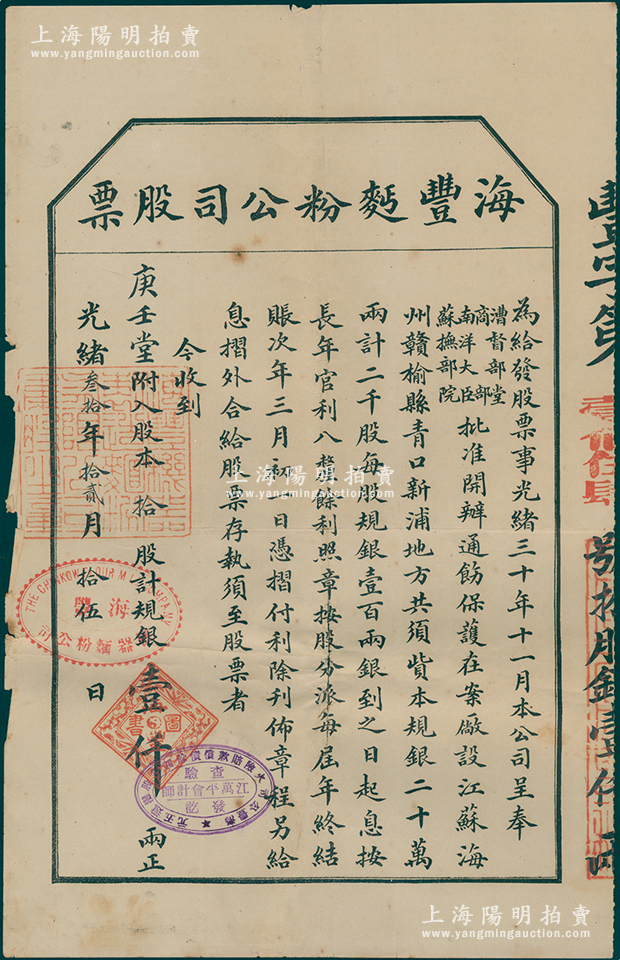 上海陽明拍賣
www.yangmingauction.com
海豐麪粉公司股票
為給發股票事光緒三十年十一月本公司呈奉
漕督部堂
商部
南洋大臣
蘇撫部院
批准開辦通飭保護在案廠設江蘇海
州贛榆縣青口新浦地方共須貲本規銀二十萬
兩計二千股每股規銀壹百兩銀到之日起息按
長年官利八釐餘利照章按股分派每屆年終結
賬次年三月初一日憑摺付利除刋佈章程另給
息摺外合給股票存執須至股票者
今收到
庚壬堂附入股本拾股計規銀壹仟兩正
光緒叁拾年拾貳月拾伍日
豐字第
號拾股銀壹仟兩
海豐
機器麵粉公司
圖書
查驗
江萬平會計師
發訖
上海陽明拍賣
www.yangmingauction.com
上海陽明拍賣
www.yangmingauction.com